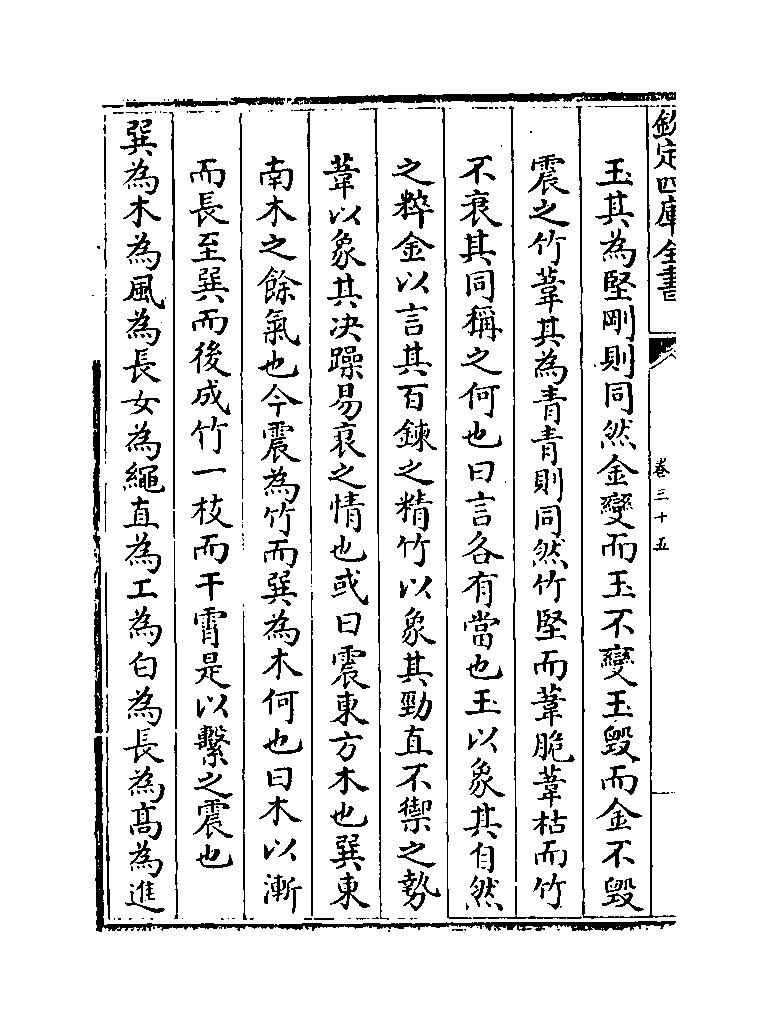 欽定四庫全書
卷三十五
玉其為堅剛則同然金變而玉不變玉毀而金不毀
震之竹葦其為青青則同然竹堅而葦脆葦枯而竹
不衰其同稱之何也曰言各有當也玉以象其自然
之粹金以言其百鍊之精竹以象其勁直不禦之勢
葦以象其决躁易衰之情也或曰震東方木也巽東
南木之餘氣也今震為竹而巽為木何也曰木以漸
而長至巽而後成竹一枝而干霄是以繫之震也
巽為木為風為長女為繩直為工為白為長為髙為進